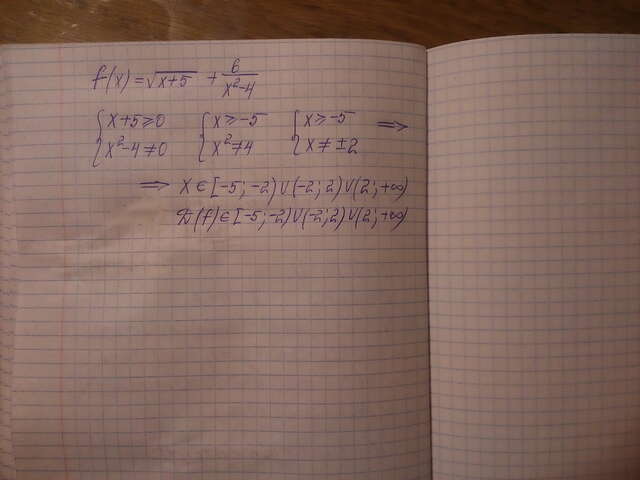 f(x) = √(x+5) + 6/(x²-4)
{x+5≥0 {x≥-5 {x≥-5 =>
{x²-4≠0 {x²≠4 {x≠±2
=> x∈[-5;-2)∪(-2;2)∪(2;+∞)
D(f)∈[-5;-2)∪(-2;2)∪(2;+∞)